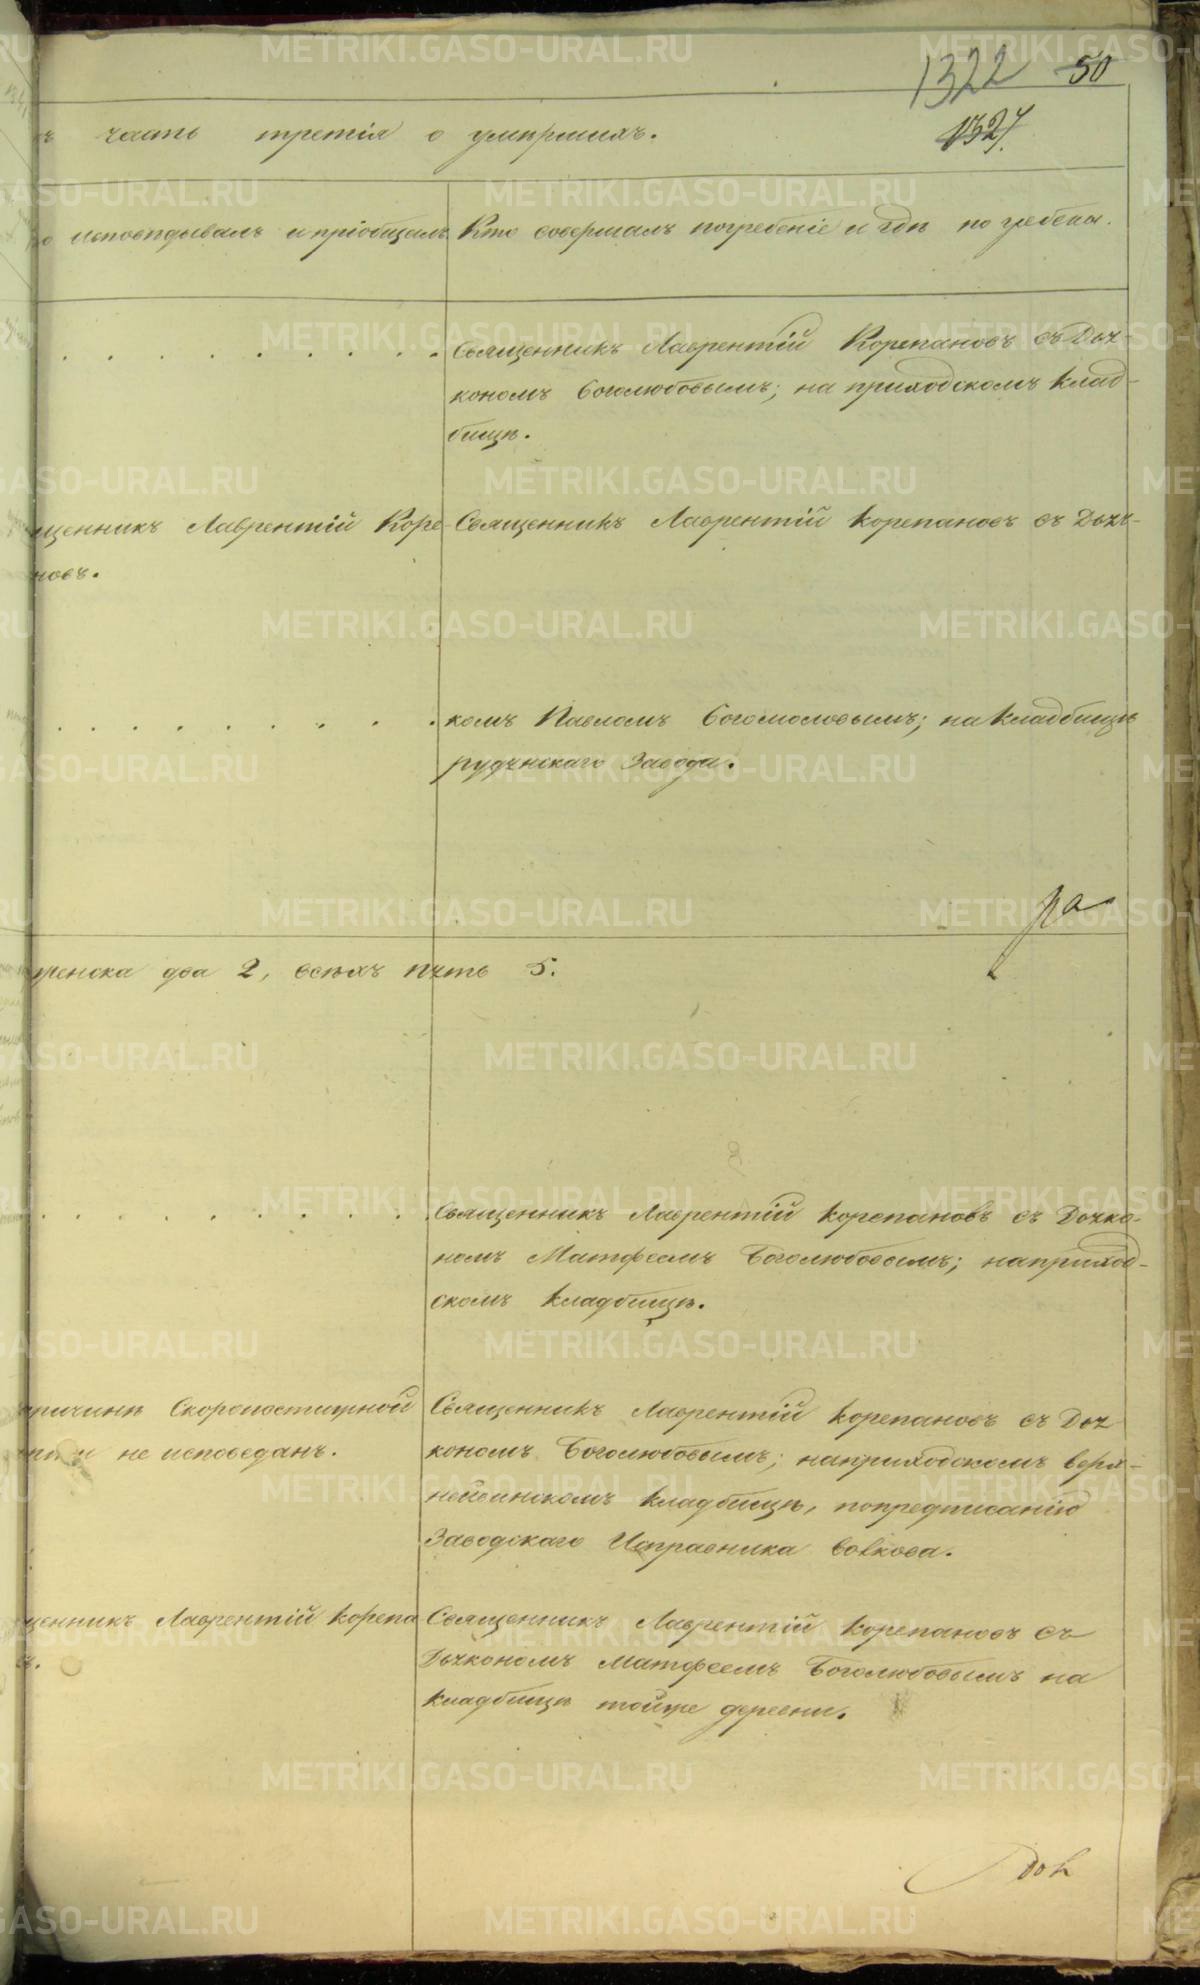 1322 50
1327.
ъ часть третія о умершихъ.
о исповѣдывалъ и пріобщалъ
Кто совершалъ погребеніе и гдѣ погребены.
Священникъ Лаврентій Корепановъ съ Дья-
кономъ Боголюбовымъ; на приходскомъ клад-
бищѣ.
щенникъ Лаврентій Коре-
новъ.
Священникъ Лаврентій Корепановъ съ Дьяч-
комъ Павломъ Богомоловымъ; на кладбищѣ
рудянскаго Завода.
ра
женска два 2, всѣхъ пять 5.
Священникъ Лаврентій Корепановъ съ Дьяко-
номъ Матфеемъ Боголюбовымъ; на приход-
скомъ кладбищѣ.
причинѣ Скоропостижной
не исповеданъ.
Священникъ Лаврентій Корепановъ съ Дья
кономъ Боголюбовымъ; на приходскомъ верх-
нейвинскомъ кладбищѣ, по предписанію
Заводскаго Исправника Волкова.
щенникъ Лаврентій Корепа
въ.
Священникъ Лаврентій Корепановъ съ
Дьякономъ Матфеемъ Боголюбовымъ на
кладбищѣ тойже деревни.
METRIKI.GASO-URAL.RU